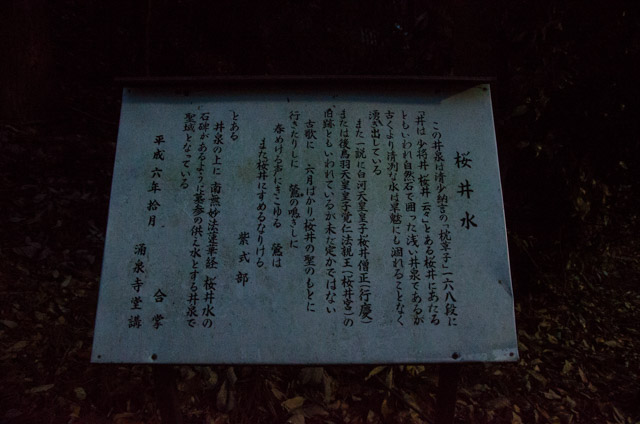 桜井水
この井泉は清少納言の「枕草子」一六八段に
「井は 少将井 桜井 云々」とある桜井にあたる
ともいわれ自然石で囲った浅い井泉であるが
古くより清冽な水は旱魃にも涸れることなく
湧き出している
また一説に白河天皇皇子桜井僧正(行慶)
または後鳥羽天皇皇子覚仁法親王(桜井宮)の
旧跡ともいわれているが未だ定かではない
古歌に 六月ばかり桜井の聖のもとに
行きたりしに 鶯の鳴きしに
春めける声にきこゆる 鶯は
また桜井にすめるなりける
紫式部
とある
井泉の上に 南無妙法蓮華経 桜井水の
石碑があるように墓参の供え水とする井泉で
聖域となっている
平成六年拾月 合掌
涌泉寺堂講